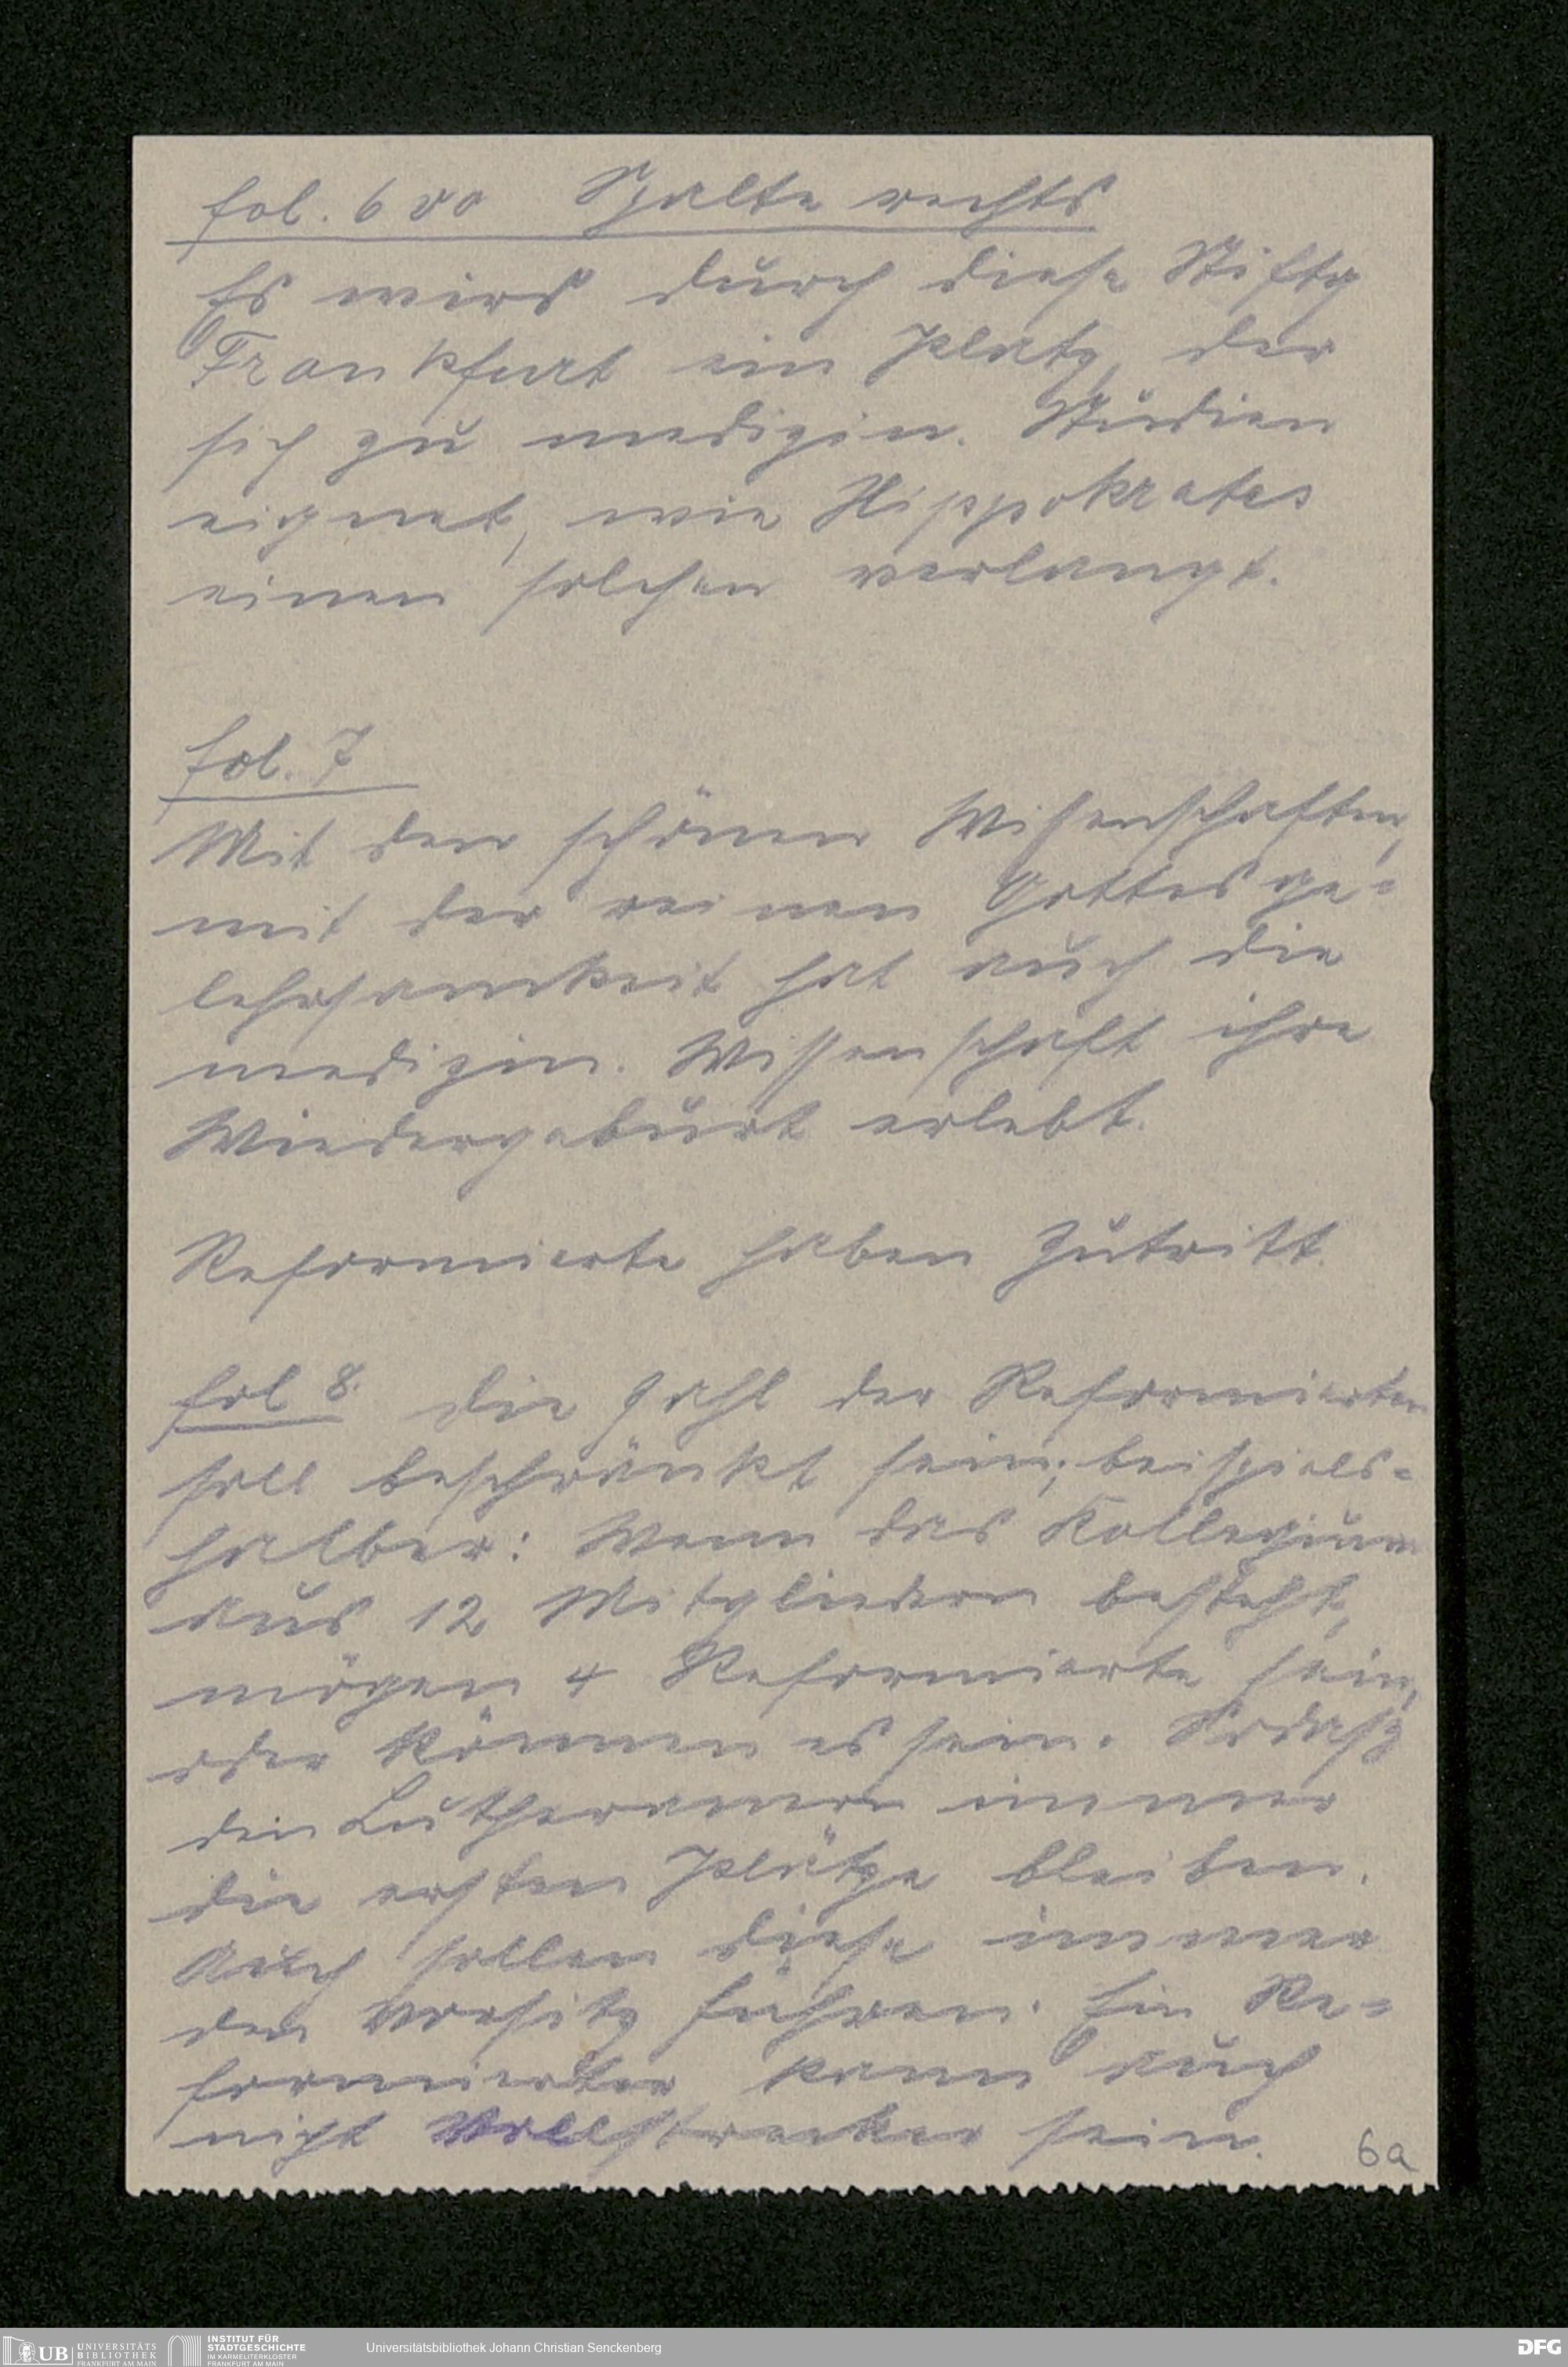 fol. 6 vo Spalte rechts
Es wird durch diese Stiftg
Frankfurt ein Platz, der
sich zu medizin. Studien
eignet, wie Hippokrates
einen solchen verlangt.
fol. 7
Mit den schönen Wissenschaften,
mit der reinen Gottesge-
lehrsamkeit hat auch die
medizin. Wissenschaft ihre
Wiedergeburt erlebt.
Reformierte haben Zutritt.
fol 8. Die Zahl der Reformierten
soll beschränkt sein; beispiels-
halber: Wenn das Kollegium
aus 12 Mitgliedern besteht,
mögen 4 Reformierte sein,
oder können es sein. Sodaß
den Lutheranern immer
die ersten Plätze bleiben.
Auch sollen diese immer
den Vorsitz führen. Ein Re-
formierter kann auch
nicht Vollstrecker sein.
6a
UB UNIVERSITÄTS BIBLIOTHEK FRANKFURT AM MAIN
INSTITUT FÜR STADTGESCHICHTE IM KARMELITERKLOSTER FRANKFURT AM MAIN
Universitätsbibliothek Johann Christian Senckenberg
DFG